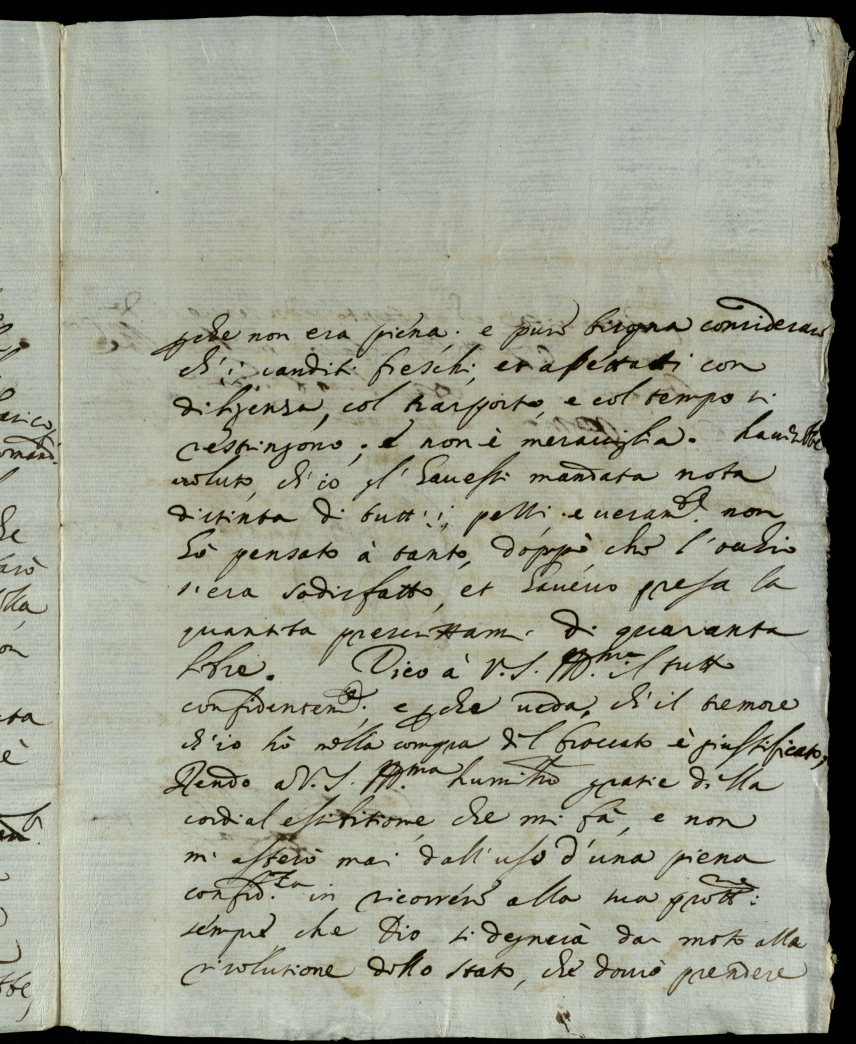 perche non era piena. e pure bisogna considerare
ch'i canditi freschi, et assettati con
diligenza, col trasporto, e col tempo si
restringono; e non è merauiglia. hauerebbe
uoluto, ch'io gl'hauessi mandata nota
distinta di tutti i pelli, e ueram.te non
hò pensato à tanto, doppo che l'
s'era sodisfatto, et haueuo presa la
quantita di quaranta
libre. Dico à V. S. Ill.ma il tutto
confidentem.te e perche ueda, ch'il timore
ch'io hò nella compra del broccato è giustificato,
Rendo a V. S. Ill.ma humiliss.e gratie della
cordial essibitione, che mi fà, e non
mi asterrò mai dall'uso d'una piena
confid.za in ricorrere alla sua prott.ne:
sempre che Dio si degnerà dar moto alla
risolutione dello stato, che dourò prendere